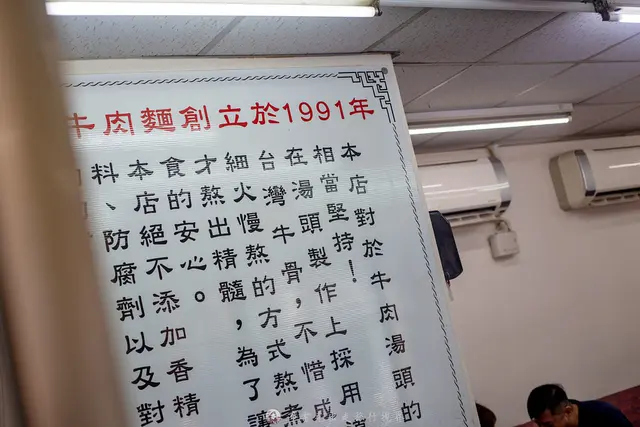 牛肉麵創立於1991年
本店對於牛肉湯頭的
相當堅持！
在湯頭製作上採用
台灣牛骨，不惜成
細火慢熬的方式熬煮
才熬出精髓，為了讓
食的安心。
本店絕不添加香精
料、防腐劑以及對